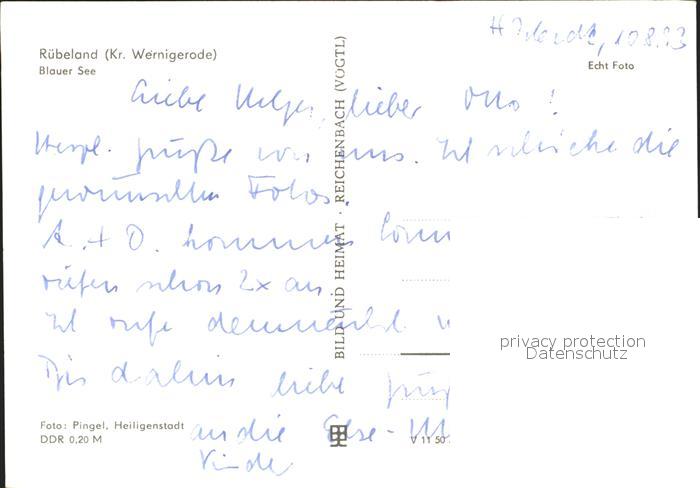 10.8.93
Rübeland (Kr. Wernigerode)
Blauer See
Echt Foto
Liebe Helga, lieber Otto!
Herzl. Grüße von uns. Ich schicke die
gewünschten Fotos.
A. + D. kommen
riefen schon 2x an.
Ich rufe demnächst
Bis dahin liebe
an die Else-
Kinder
BILD UND HEIMAT · REICHENBACH (VOGTL)
privacy protection
Datenschutz
Foto: Pingel, Heiligenstadt
DDR 0,20 M
V 11 50